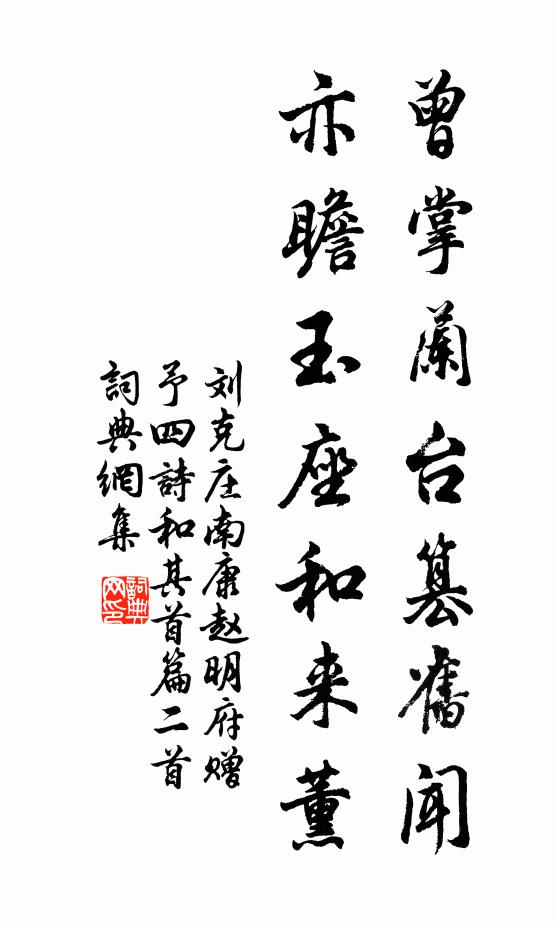 曾掌蘭台篡舊聞
亦瞻玉座和来薰
刘克庄南康赵明府赠
予四詩和其首篇二首
詞典網集
詞典网印